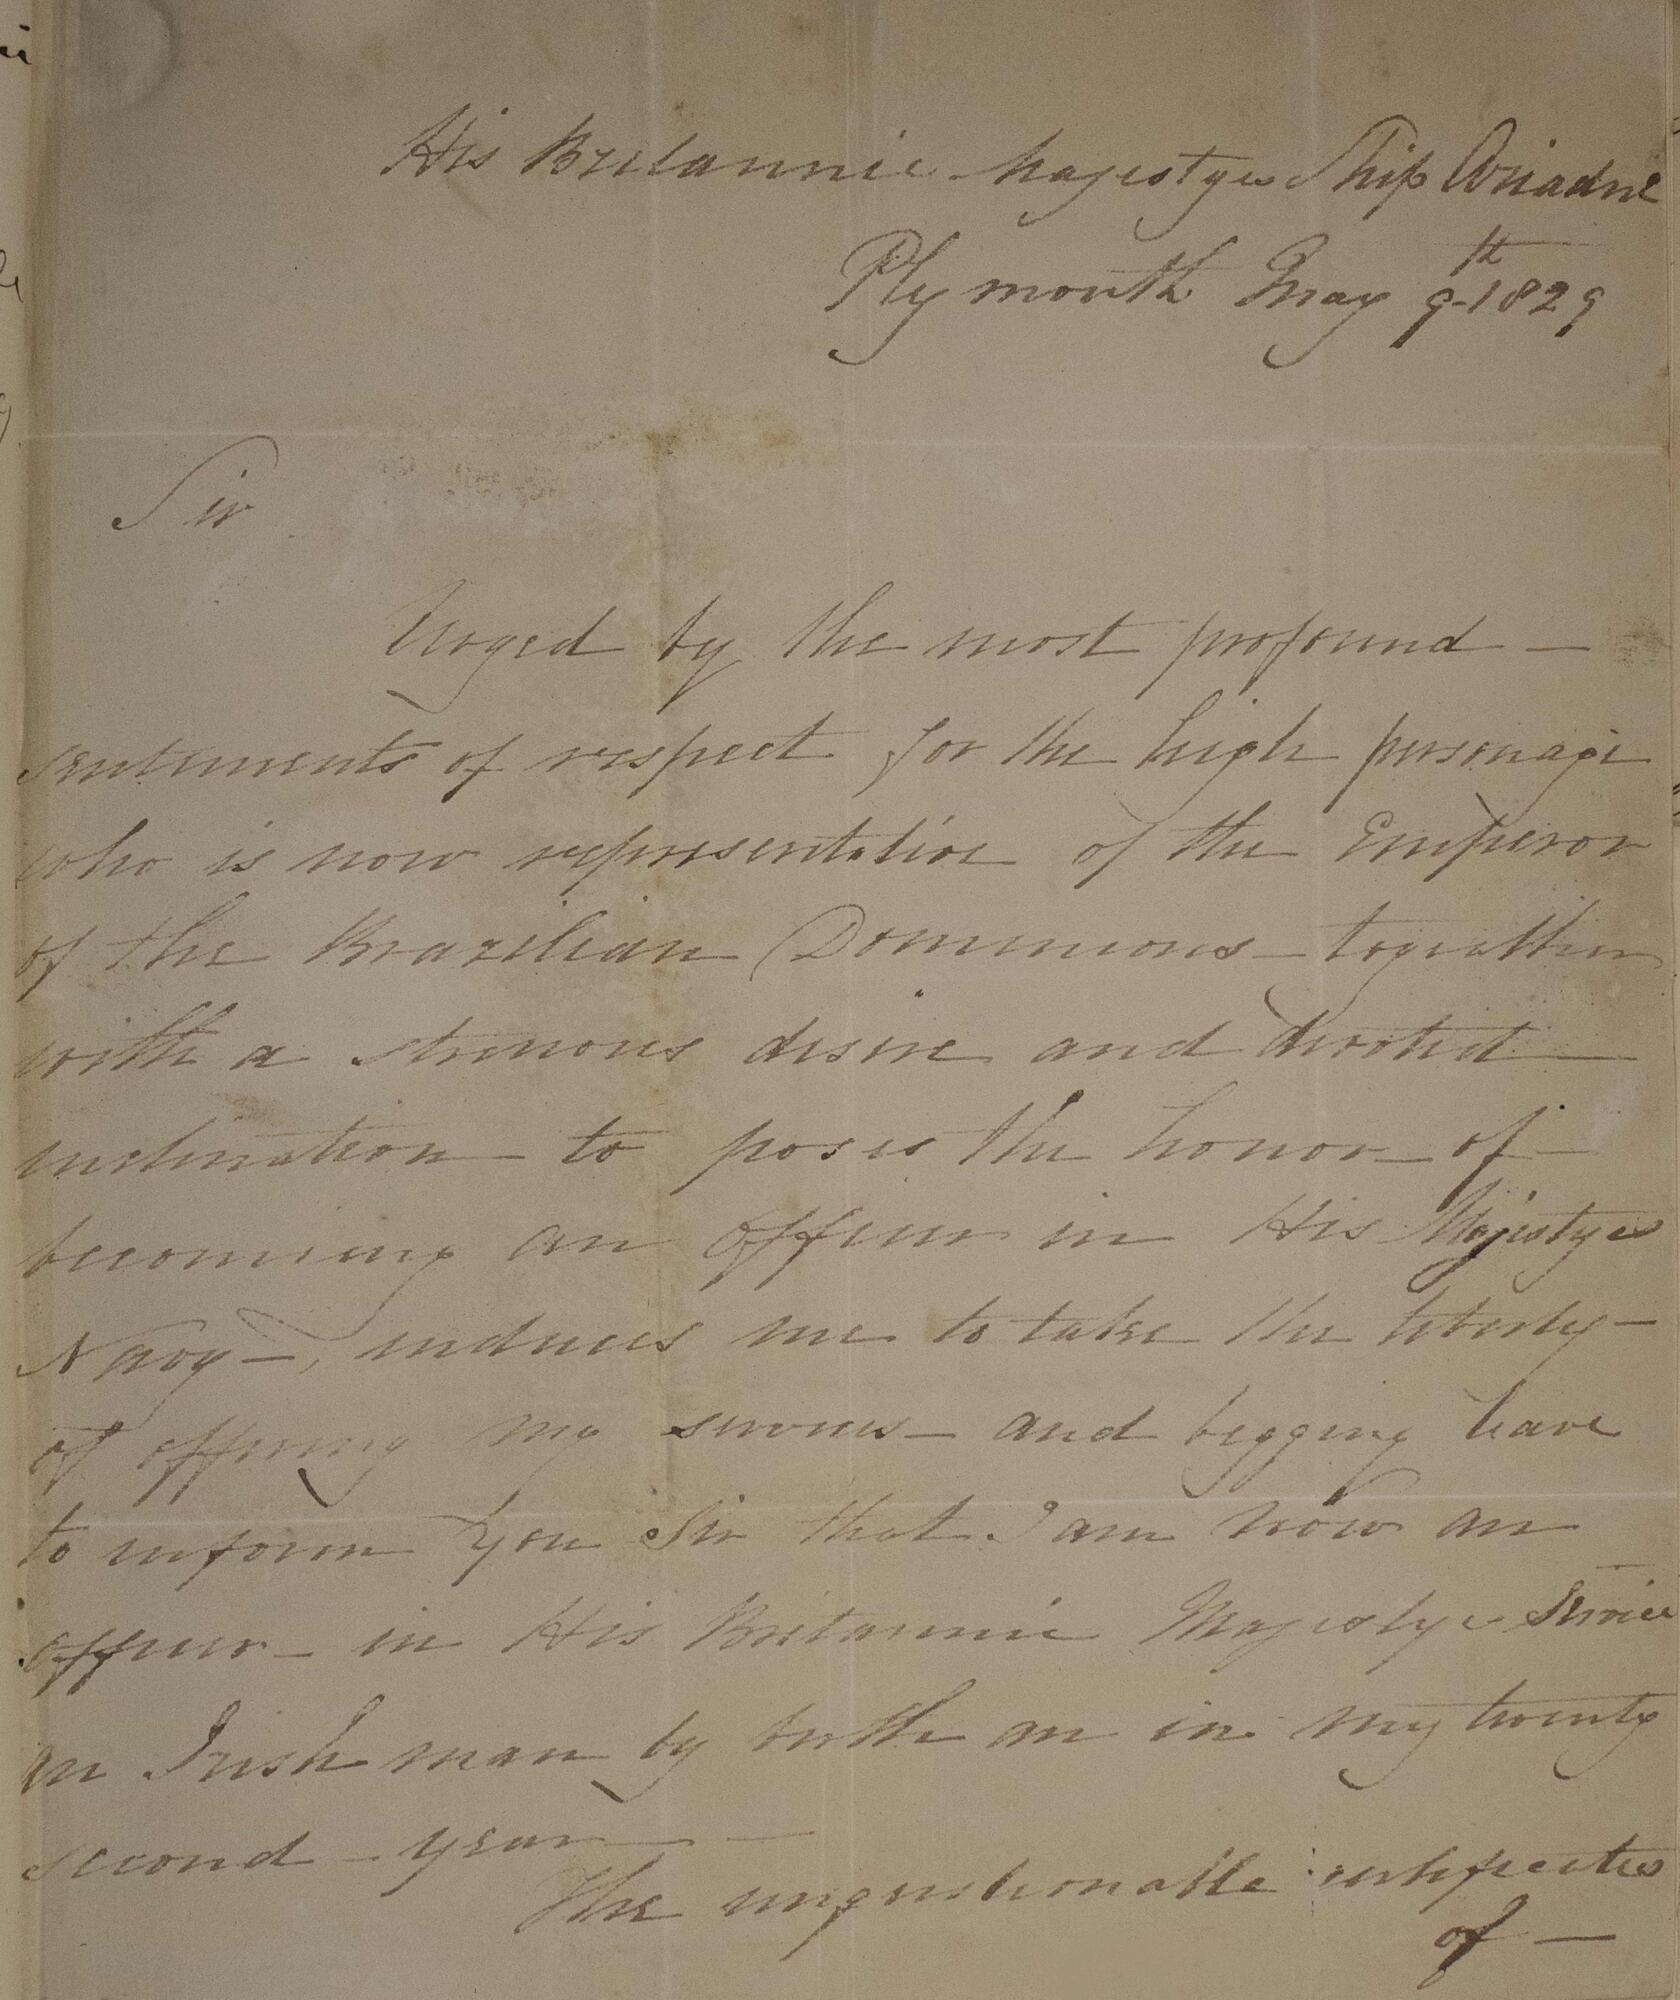 His Britannic Majestyes Ship Ariadne
Plymouth May 9th 1829
Sir
Urged by the most profound —
sentements of respect for the high personage
who is now representative of the Emperor
of the Brazilian Dominions — together
with a strenous desire and devoted —
inclination to posess the honor of —
becoming an officer in His Majestyes
Navy —, induces me to take the liberty —
of offering my services — and begging leave
to inform you Sir that I am now an
officer — in His Britannic Majestyes Service
an Irish man by birth an in my twenty
second — year —
The unquestionable certificates
of —